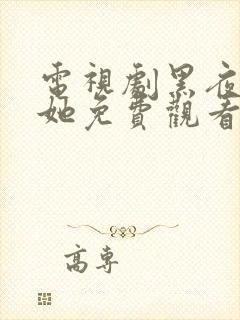 電視劇黑夜
她免費觀看
高專